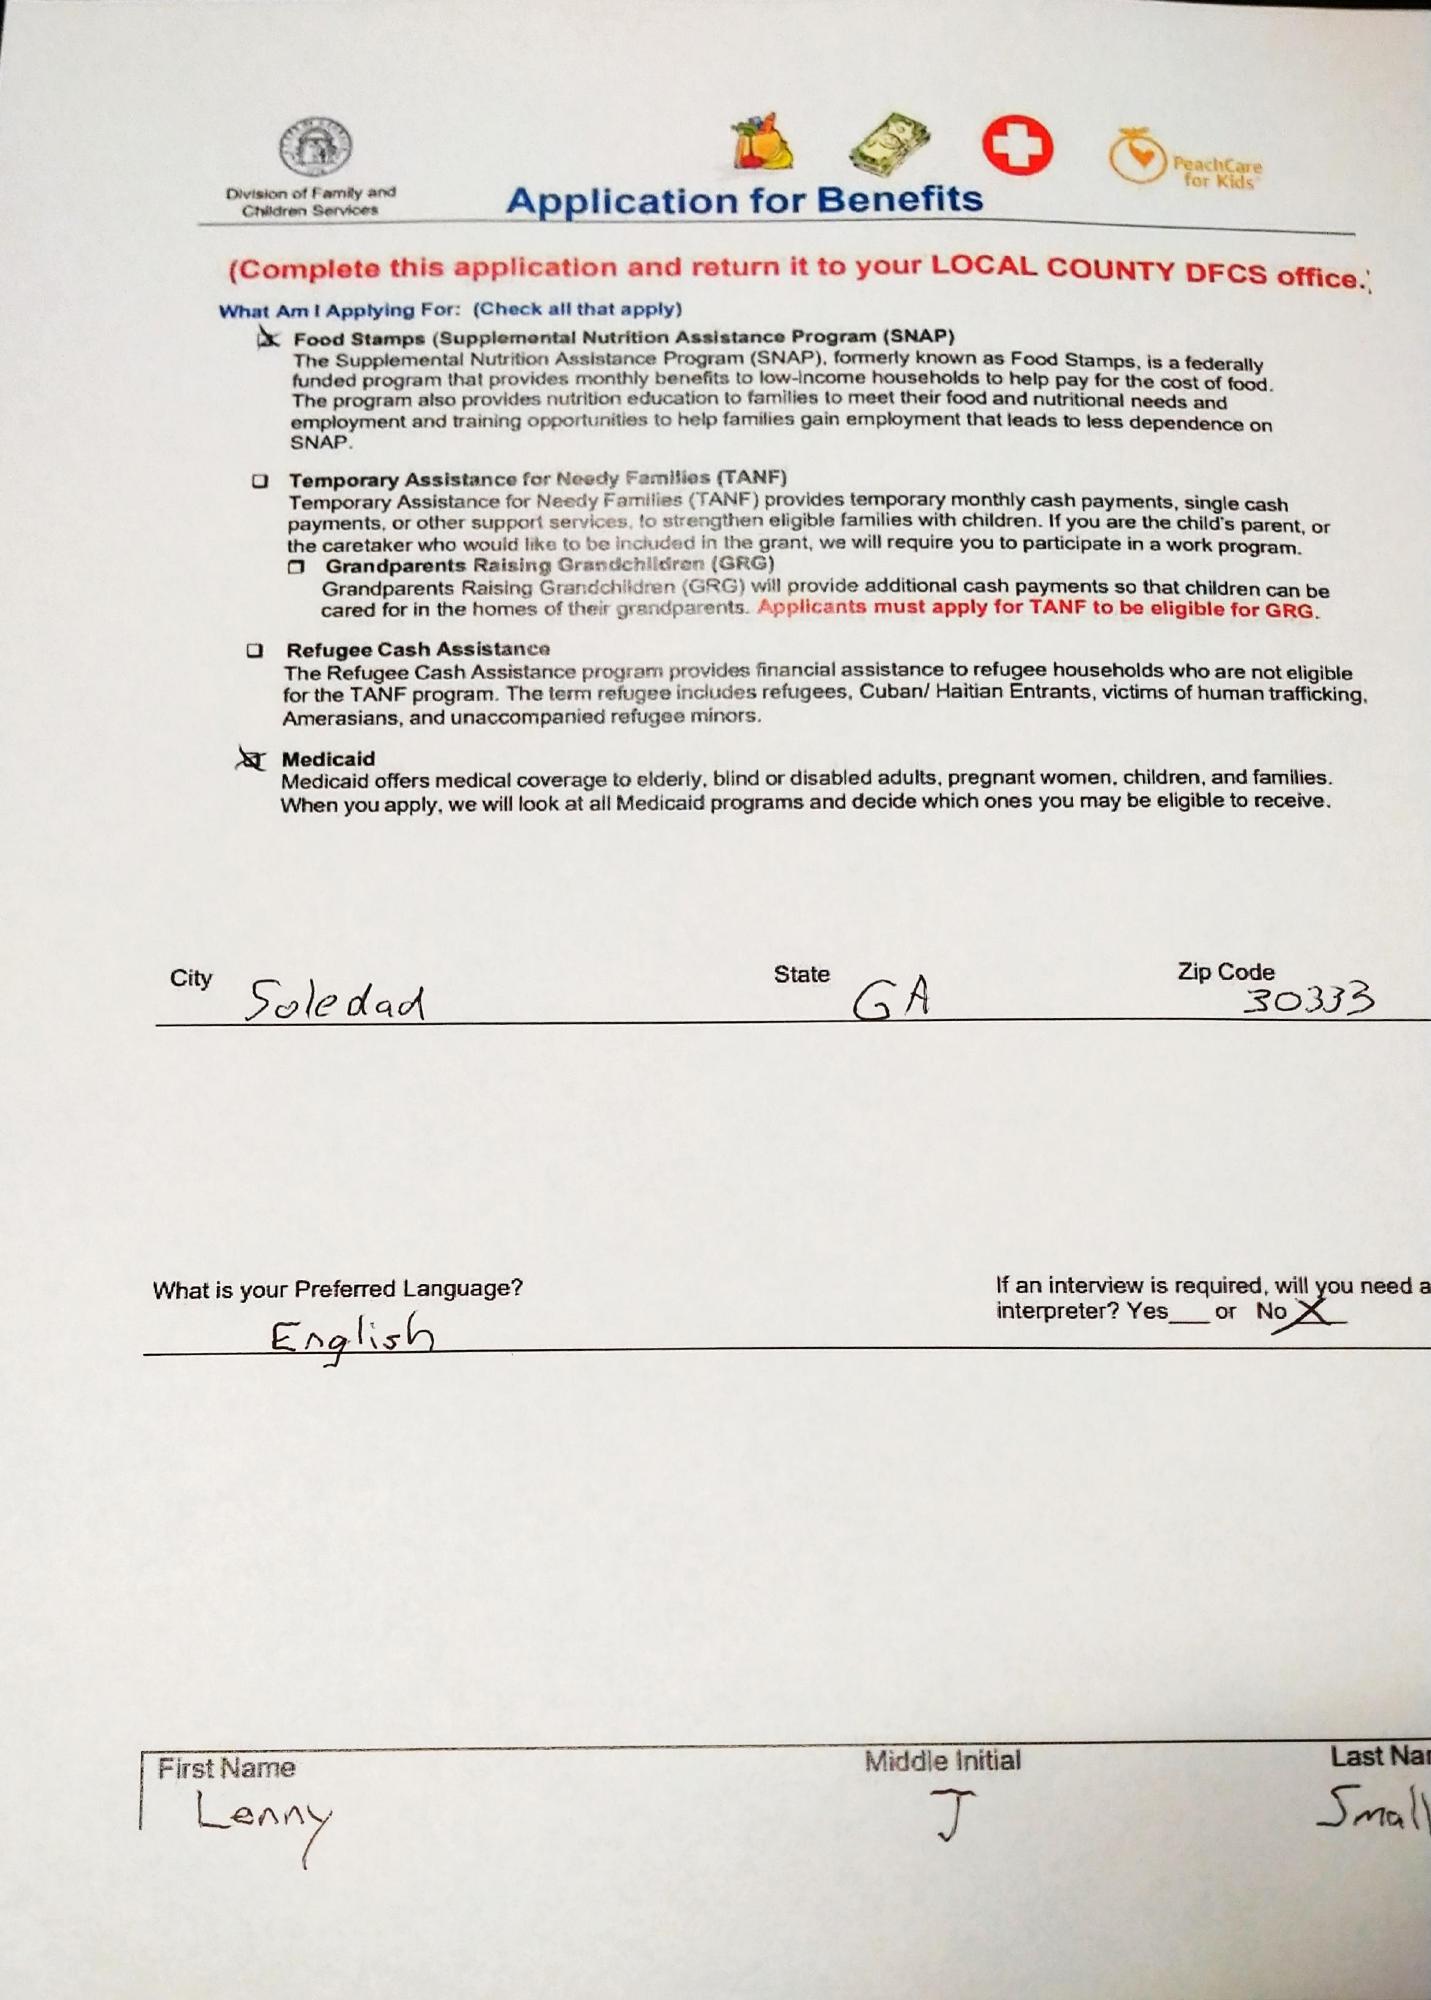 Division of Family and
Children Services
PeachCare
for Kids
Application for Benefits
(Complete this application and return it to your LOCAL COUNTY DFCS office.
What Am I Applying For: (Check all that apply)
Food Stamps (Supplemental Nutrition Assistance Program (SNAP)
The Supplemental Nutrition Assistance Program (SNAP), formerly known as Food Stamps, is a federally
funded program that provides monthly benefits to low-income households to help pay for the cost of food.
The program also provides nutrition education to families to meet their food and nutritional needs and
employment and training opportunities to help families gain employment that leads to less dependence on
SNAP.
Temporary Assistance for Needy Families (TANF)
Temporary Assistance for Needy Families (TANF) provides temporary monthly cash payments, single cash
payments, or other support services, to strengthen eligible families with children. If you are the child's parent, or
the caretaker who would like to be included in the grant, we will require you to participate in a work program.
Grandparents Raising Grandchildren (GRG)
Grandparents Raising Grandchildren (GRG) will provide additional cash payments so that children can be
cared for in the homes of their grandparents. Applicants must apply for TANF to be eligible for GRG.
Refugee Cash Assistance
The Refugee Cash Assistance program provides financial assistance to refugee households who are not eligible
for the TANF program. The term refugee includes refugees, Cuban/ Haitian Entrants, victims of human trafficking,
Amerasians, and unaccompanied refugee minors.
Medicaid
Medicaid offers medical coverage to elderly, blind or disabled adults, pregnant women, children, and families.
When you apply, we will look at all Medicaid programs and decide which ones you may be eligible to receive.
City Soledad State GA Zip Code 30333
What is your Preferred Language? If an interview is required, will you need a
interpreter? Yes___ or No X
English
First Name Middle Initial Last Nar
Lenny J Small